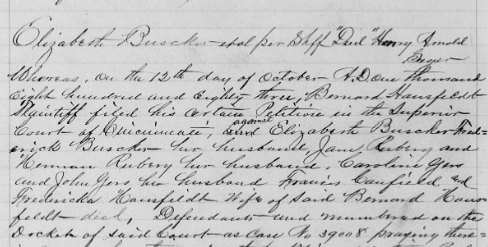 Elizabeth Buscker et al per Shff "Deed" Henry Arnold
Beyer
Whereas, on the 12th day of October A.D. one thousand
Eight hundred and Eighty three, Bernard Hausfeldt
Plaintiff filed his certain Petition in the Superior
Court of Cincinnati, against Elizabeth Buscker Fred-
erick Buscker her husband, Jane Rubery and
Herman Rubery her husband, Caroline Gers
and John Gers her husband Francis Caufield, and
Fredericka Hausfeldt Wife of said Bernard Haus-
feldt died, Defendants and numbered on the
Docket of said Court as Case No. 39008 praying there-